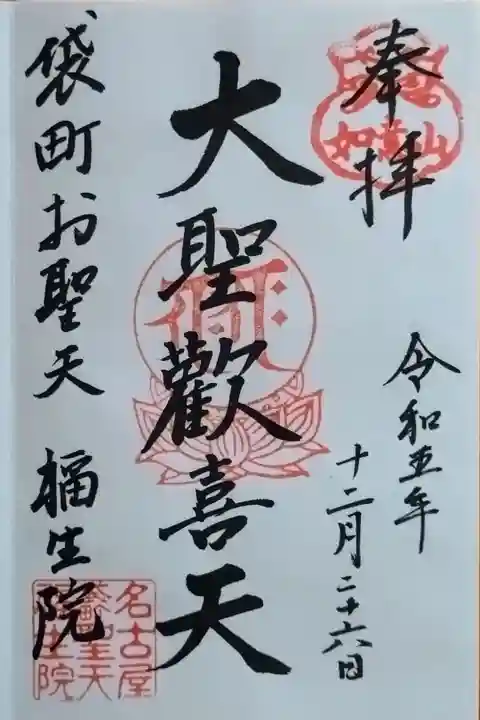 奉拝
如意山
令和五年
十二月二十六日
大聖歡喜天
袋町お聖天 福生院
名古屋
袋町聖天
福生院